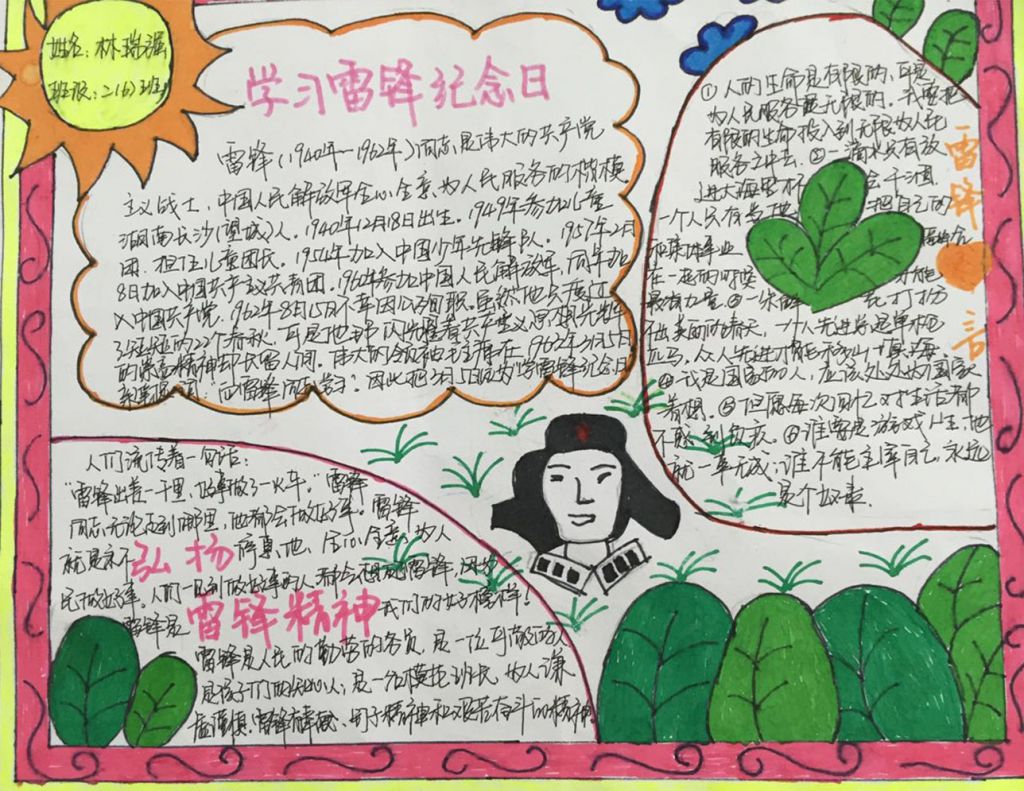 姓名：林瑞涵
班级：二(6)班
学习雷锋纪念日
雷锋（1940年—1962年）同志是伟大的共产党
主义战士，中国人民解放军全心全意为人民服务的楷模
湖南长沙（望城）人。1940年12月18日出生。1949年参加儿童
团，担任儿童团长。1954年加入中国少年先锋队。1957年2月
8日加入中国共产主义共青团。1960年参加中国人民解放军，同年加
入中国共产党。1962年8月15日不幸因公殉职。虽然他只度过
短短的22个春秋，可是他那闪耀着共产主义思想光辉
的崇高精神却长留人间。伟大的领袖毛主席在1963年3月5日
亲笔题词：“向雷锋同志学习”。因此把3月5日定为学雷锋纪念日
①人的生命是有限的，可是
为人民服务是无限的。我要把
有限的生命投入到无限为人民
服务之中去。②一滴水只有放
进大海里才 会干涸
一个人只有当他 把自己
和集体事业
在一起的时候 才能
最有力量。③一朵鲜 花打扮
不出美丽的春天，一个人先进总是单枪
匹马，众人先进才能移山填海
④我是国家的人，应该处处为国家
着想。⑤但愿每次回忆对生活都
不感到负疚。⑥谁要是游戏人生，他
就一事无成，谁不能主宰自己，永远
是个奴隶
雷锋 言
人们流传着一句话：
“雷锋出差一千里，好事做了一火车。”雷锋
同志无论走到哪里，他都会做好事。雷锋
就是永不 停息地、全心全意为人
民做好事。人们一见到做好事的人都会想起雷锋，因为
雷锋是 我们的好榜样！
弘扬
雷锋精神
雷锋是人民的勤劳的务员，是一位可敬的
是孩子们的知心人，是一名模范班长，为人谦